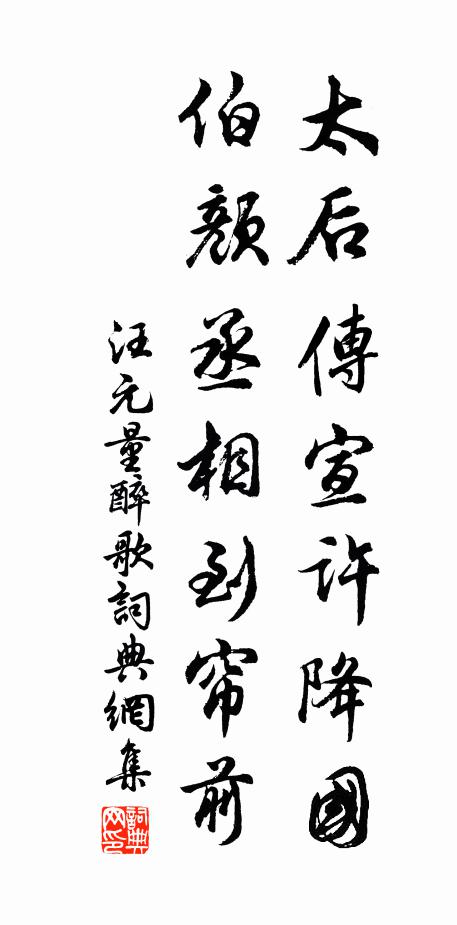 太后傳宣許降國
伯顏丞相到帘前
汪元量醉歌詞典網集
詞典网印